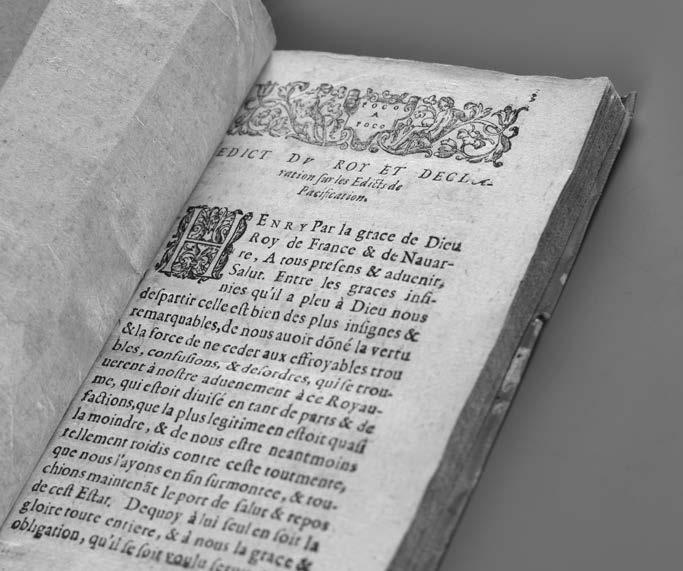 3
POCO
A
POCO
EDICT DV ROY ET DECLA-
ration ſur les Edicts de
Pacification.
HENRY Par la grace de Dieu
Roy de France & de Nauar-
re, A tous preſens & aduenir,
Salut. Entre les graces infi-
nies qu'il a pleu à Dieu nous
deſpartir celle eſt bien des plus inſignes &
remarquables, de nous auoir dōné la vertu
& la force de ne ceder aux effroyables trou
bles, confuſions, & deſordres, qui ſe trou-
uerent à noſtre aduenement à ce Royau-
me, qui eſtoit diuiſé en tant de parts & de
factions, que la plus legitime en eſtoit quaſi
la moindre, & de nous eſtre neantmoins
tellement roidis contre ceſte tourmente,
que nous l'ayons en fin ſurmontee, & tou-
chions maintenāt le port de ſalut & repos
de ceſt Eſtat. Dequoy à lui ſeul en ſoit la
gloire toute entiere, & à nous la grace &
obligation, qu'il ſe ſoit voulu